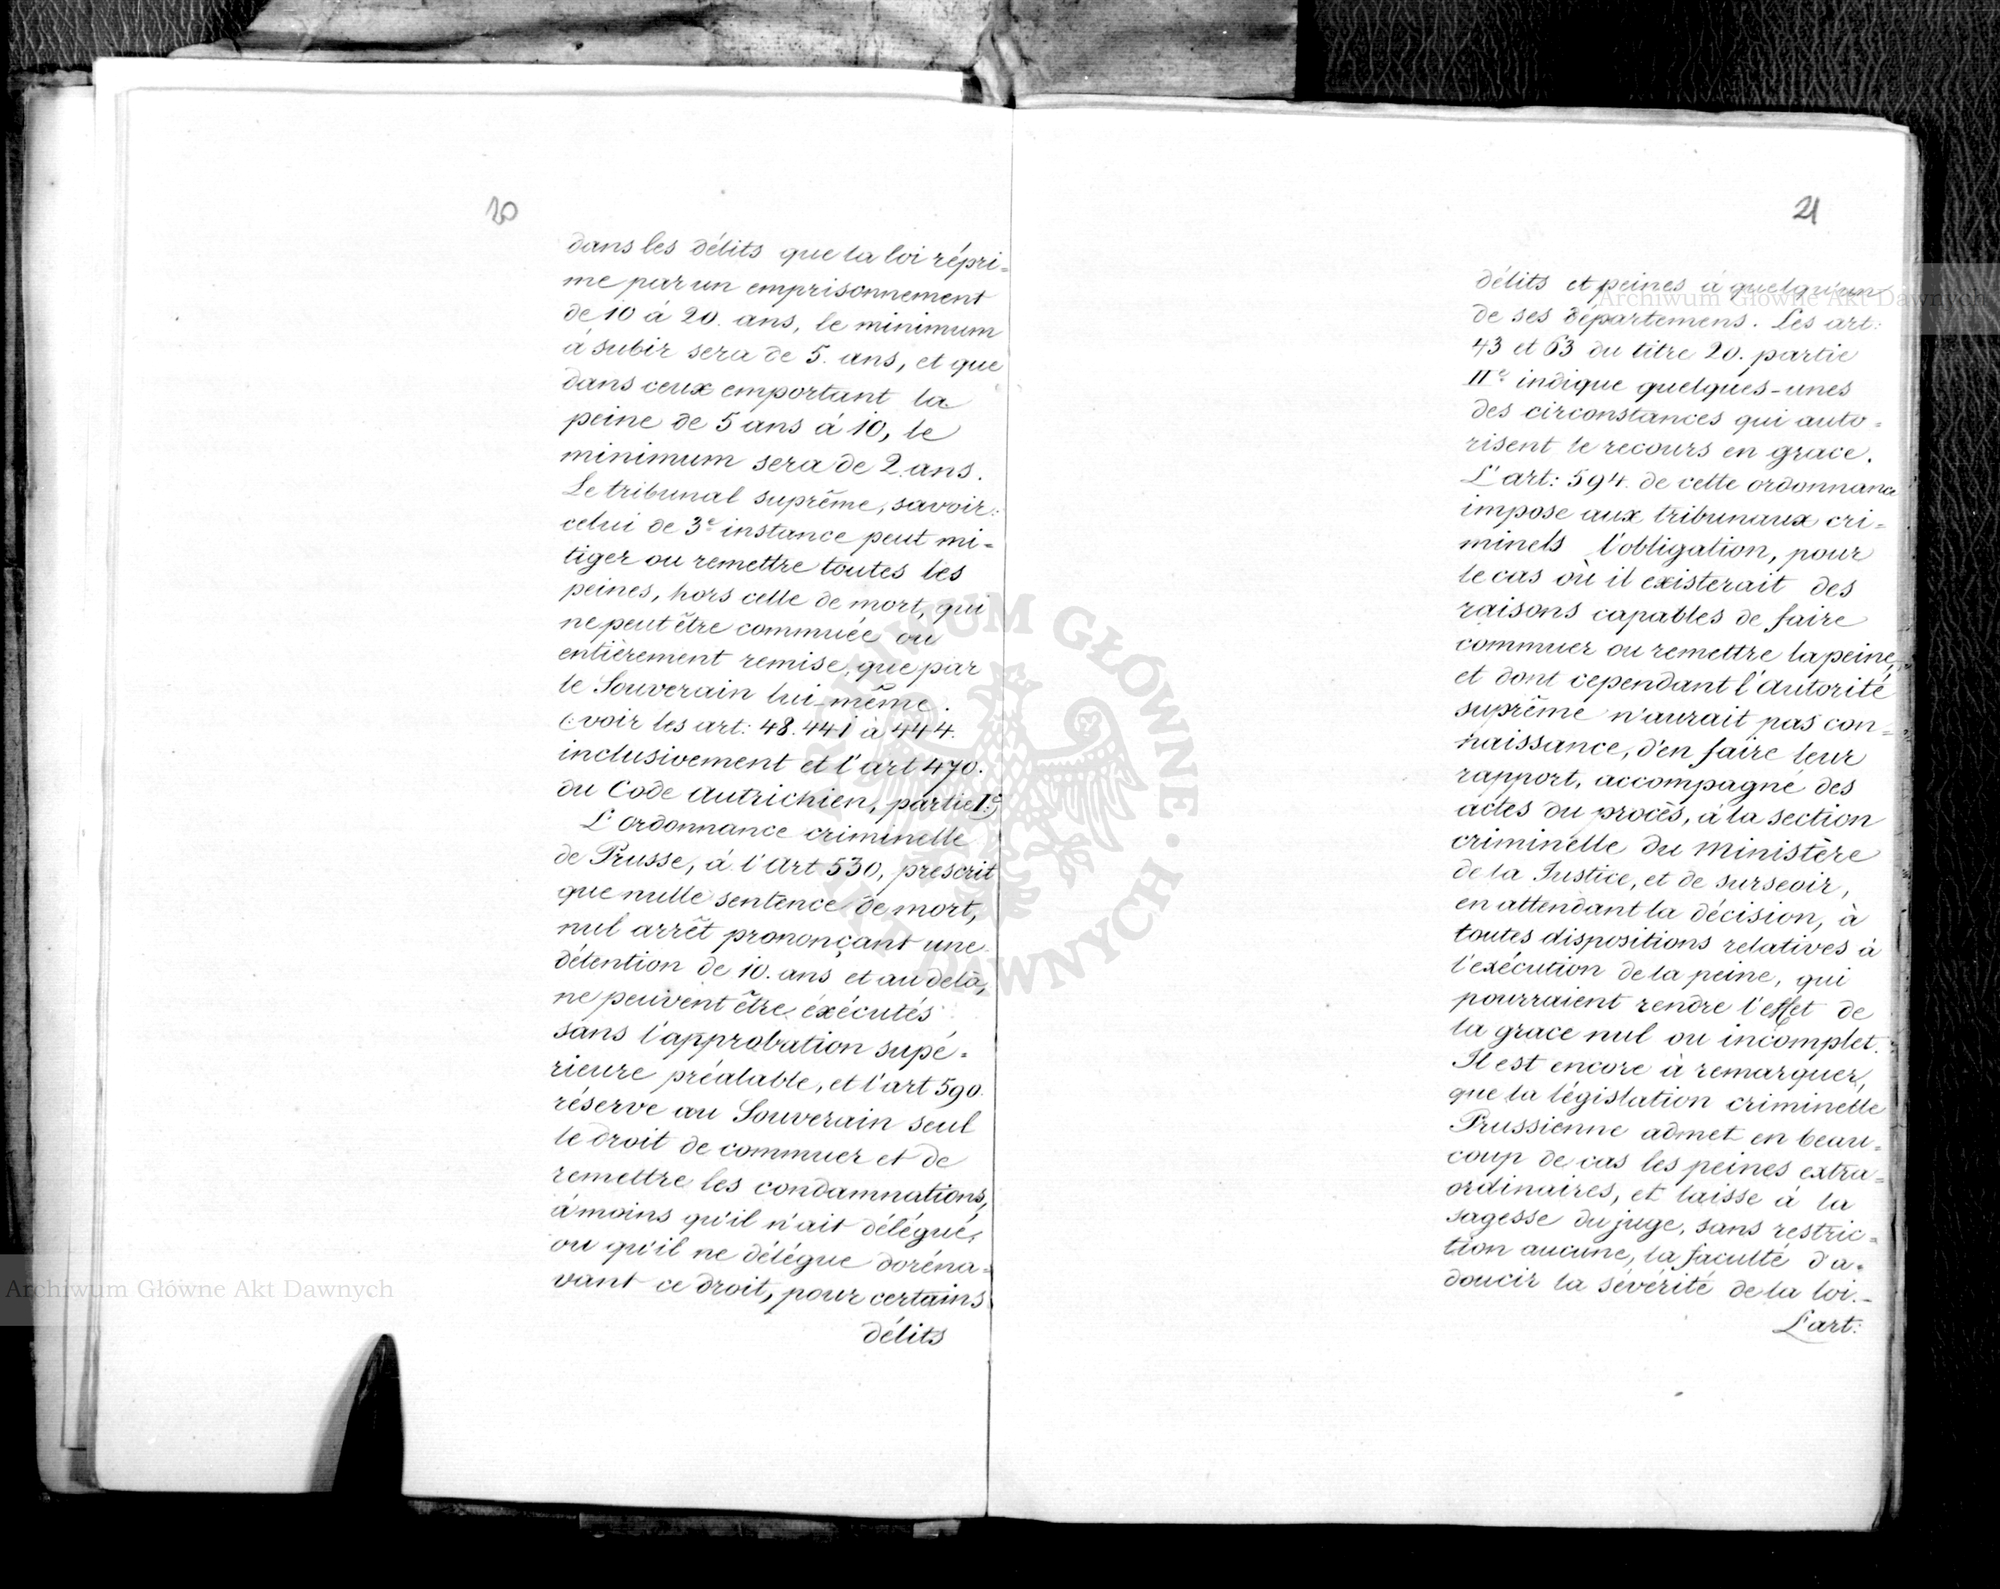 20
dans les délits que la loi répri=
me par un emprisonnement
de 10 à 20. ans, le minimum
à subir sera de 5. ans, et que
dans ceux emportant la
peine de 5 ans à 10, le
minimum sera de 2. ans.
Le tribunal suprême, savoir:
celui de 3e instance peut mi=
tiger ou remettre toutes les
peines, hors celle de mort, qui
ne peut être commuée ou
entièrement remise, que par
le Souverain lui-même.
(: voir les art: 48. 441 à 444.
inclusivement et l'art 470.
du Code Autrichien, partie Ie:)
L'ordonnance criminelle
de Prusse, à l'Art 530, prescrit
que nulle sentence de mort,
nul arrêt prononçant une
détention de 10. ans et au delà,
ne peuvent être éxécutés
sans l'approbation supé=
rieure préalable, et l'art 590.
réserve au Souverain seul
le droit de commuer et de
remettre les condamnations,
à moins qu'il n'ait délégué,
ou qu'il ne délégue doréna=
vant ce droit, pour certains
délits
21
délits et peines à quelqu'un
de ses départemens. Les art:
43 et 63 du titre 20. partie
IIe indique quelques-unes
des circonstances qui auto=
risent le recours en grace.
L'art: 594. de cette ordonnance
impose aux tribunaux cri=
minels l'obligation, pour
le cas où il existerait des
raisons capables de faire
commuer ou remettre la peine,
et dont cependant l'Autorité
suprême n'aurait pas con=
naissance, d'en faire leur
rapport, accompagné des
actes du procès, à la section
criminelle du Ministère
de la Justice, et de surseoir,
en attendant la décision, à
toutes dispositions relatives à
l'exécution de la peine, qui
pourraient rendre l'effet de
la grace nul ou incomplet.
Il est encore à remarquer,
que la législation criminelle
Prussienne admet en beau=
coup de cas les peines extra=
ordinaires, et laisse à la
sagesse du juge, sans restric=
tion aucune, la faculté d'a=
doucir la sévérité de la loi.-
L'art:
Archiwum Główne Akt Dawnych
Archiwum Główne Akt Dawnych
ARCHIWUM GŁÓWNE AKT DAWNYCH